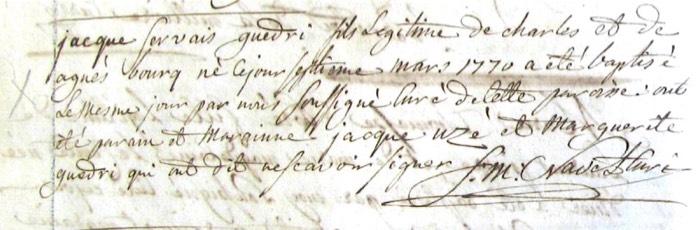 jacque Servais guedri fils Legitime de charles et de
agnès bourq né Le jour septieme mars 1770 a été baptisé
Le mesme jour par nous soussigné Curé de Cette paroisse: ont
été parain et Marainne jacque uzé et Marguerite
guedri qui ont dit ne scavoir signer f: M: